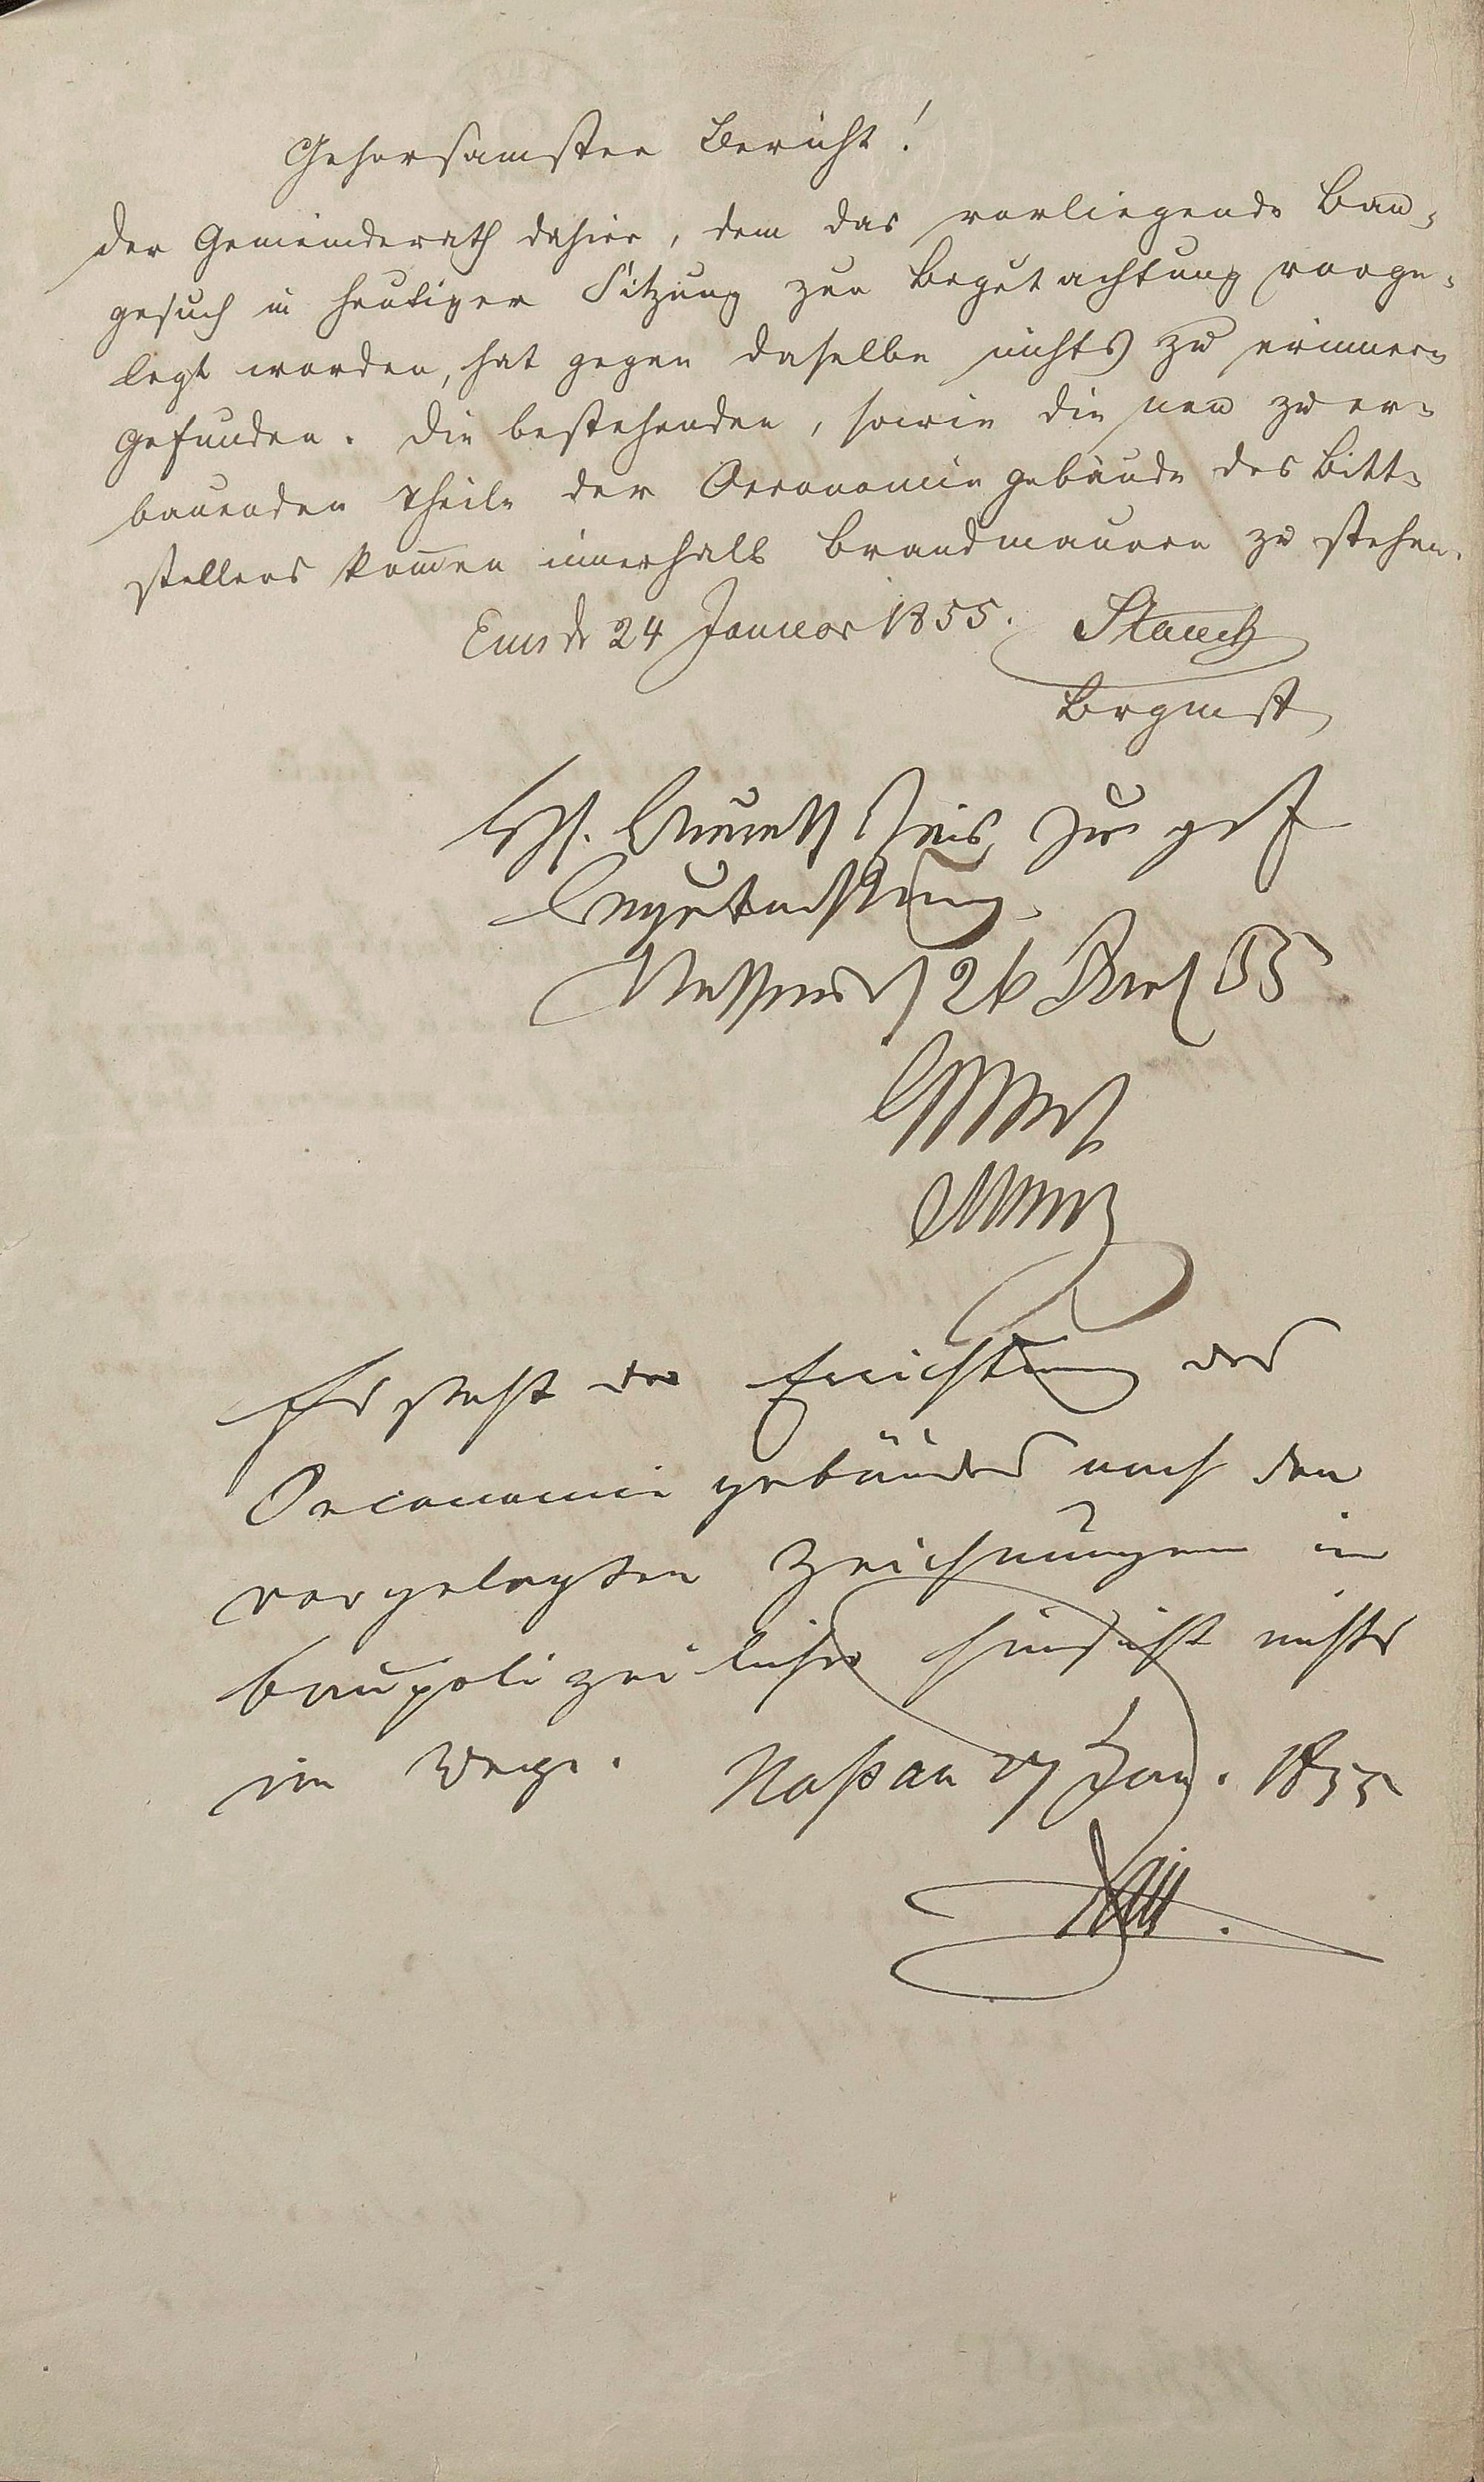 Gehorsamster Bericht!
Der Gemeinderath dahier, dem das vorliegende Bau-
gesuch in heutiger Sitzung zur Begutachtung vorge-
legt worden, hat gegen daselbe nichts zu erinnern
gefunden. Die bestehenden, sowie die neu zu er-
bauenden Theile der Oeconomiegebäude des Bitt-
stellers kom̅en innerhalb Brandmauern zu stehen.
Ems dr 24 Januar 1855. Stauch
Brgmst
zur gef
Begutachtung.
Nassau d 26 55
Es steht der Errichtung des
Oeconomie gebäudes nach den
vorgelegten Zeichnungen in
baupolizeilicher Hinsicht nichts
im Wege. Naßau 27 Jan. 1855